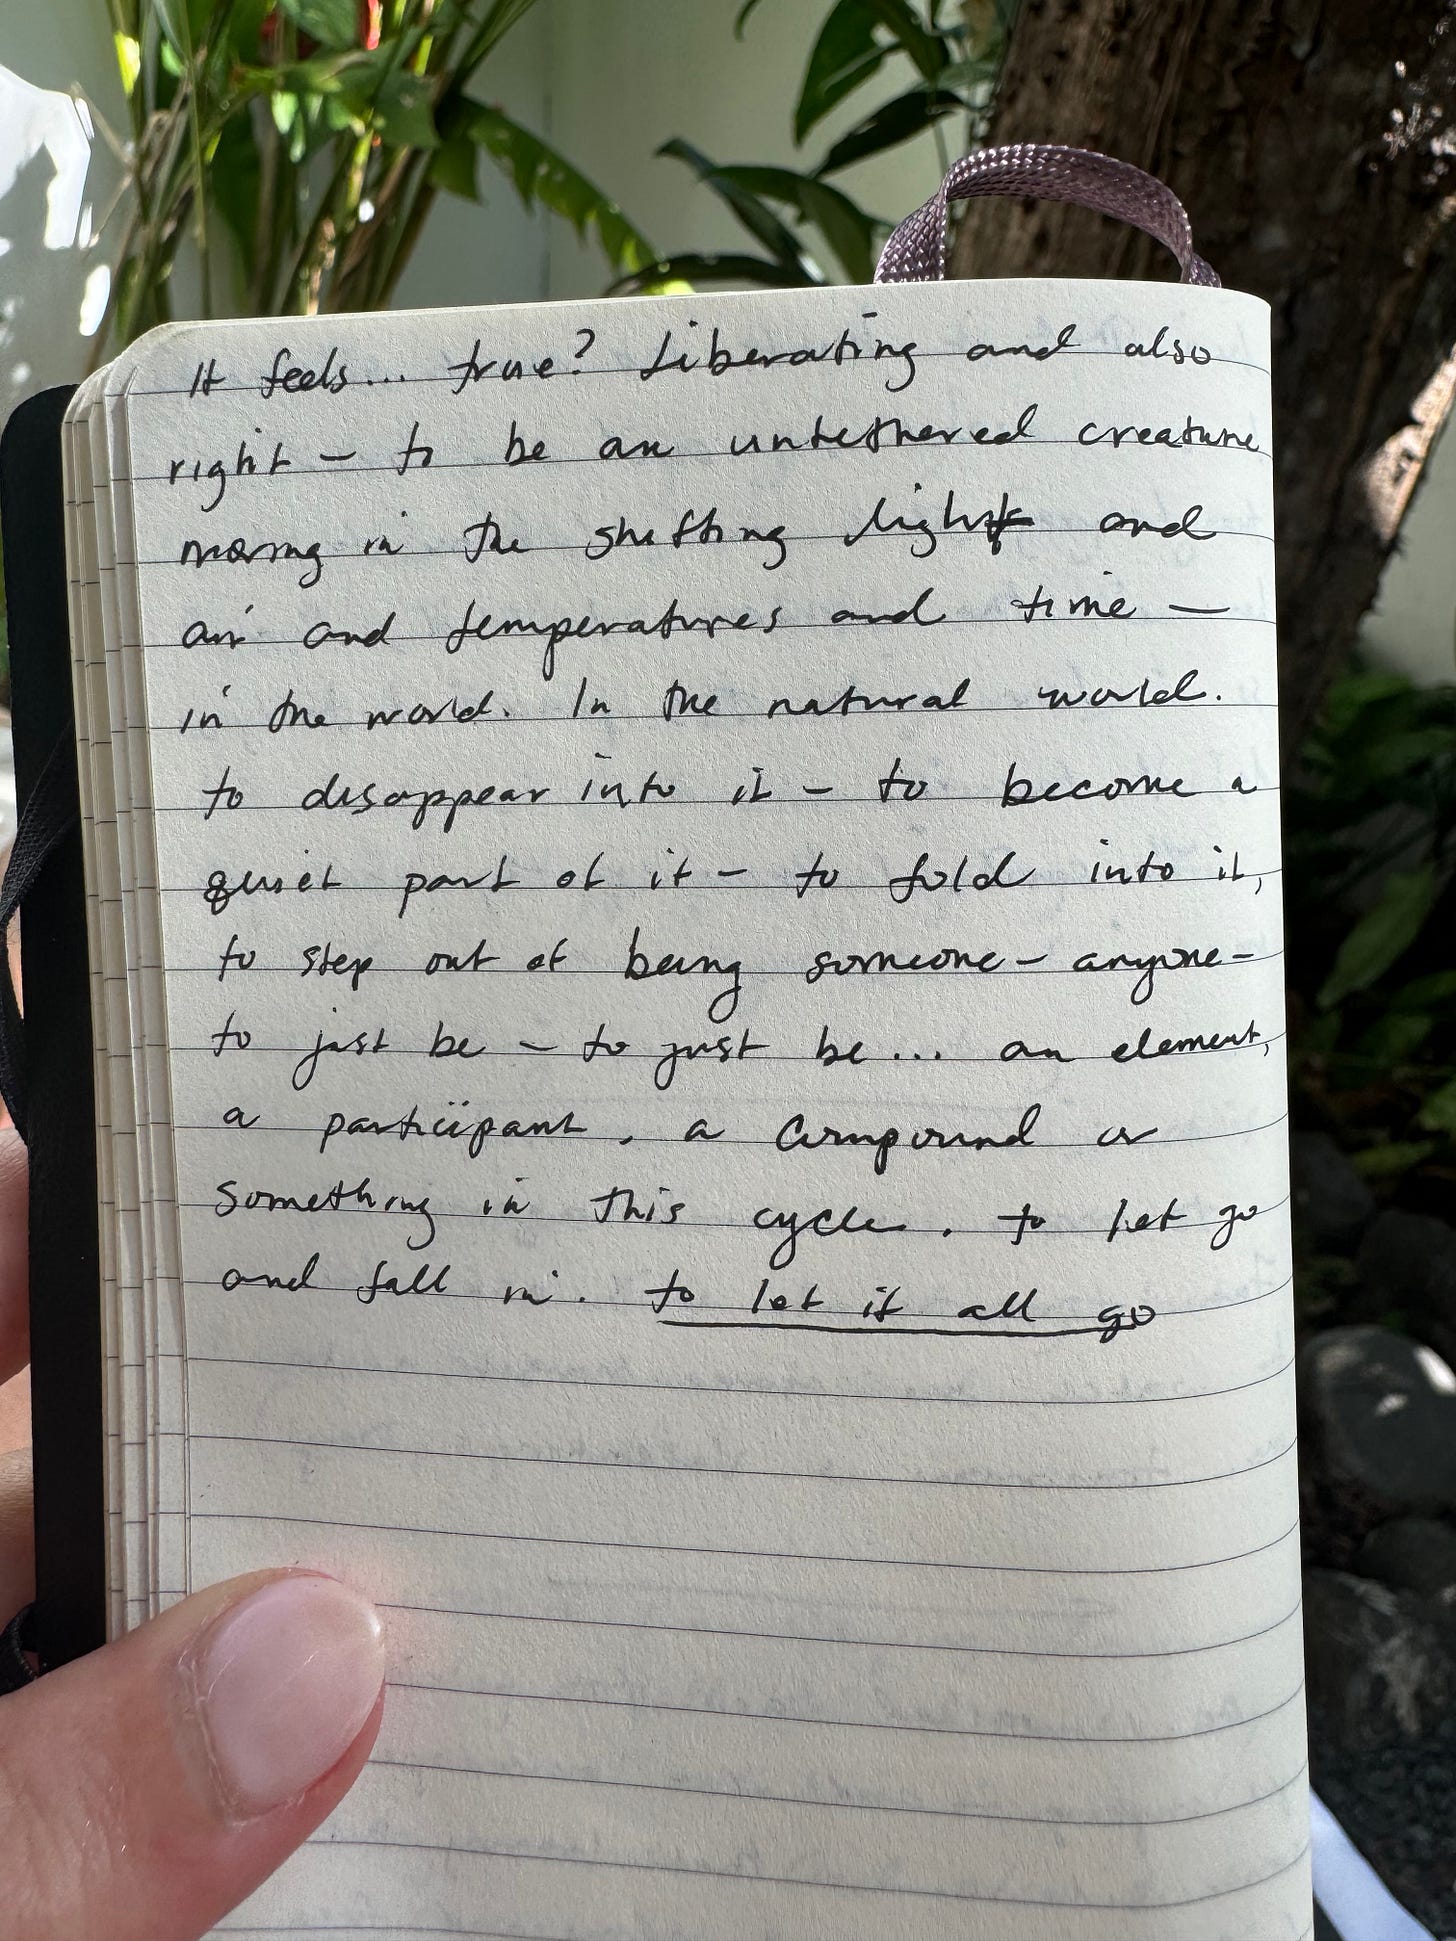 It feels... true? Liberating and also
right – to be an untethered creature
moving in the shifting light and
air and temperatures and time –
in the world. In the natural world.
to disappear into it – to become a
quiet part of it – to fold into it,
to step out of being someone – anyone –
to just be – to just be... an element,
a participant, a compound or
something in this cycle. to let go
and fall in. to let it all go